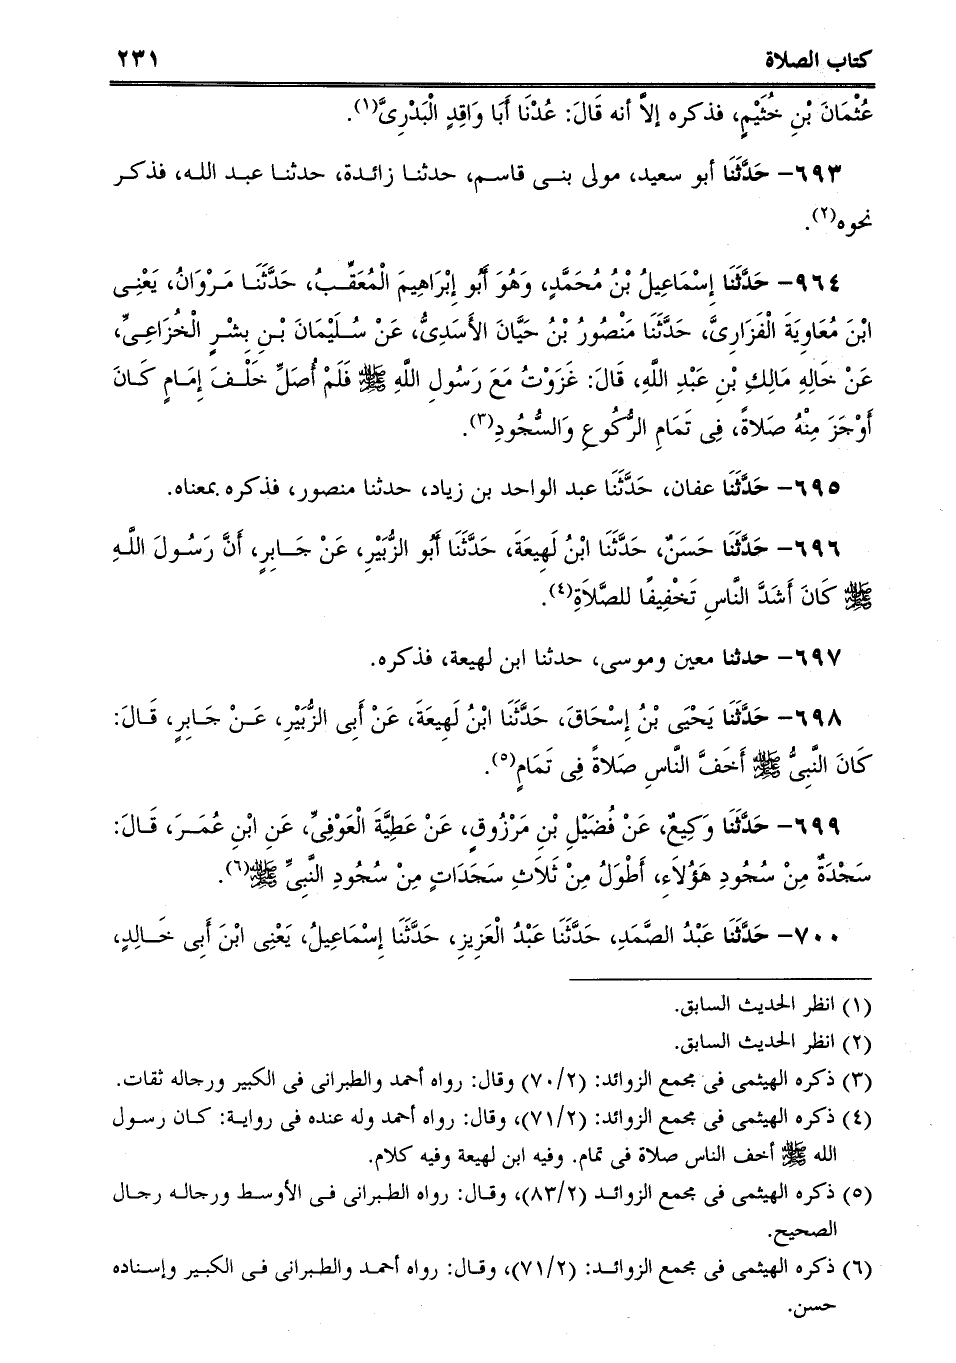 كتاب الصلاة ٢٣١
عُثْمَانَ بْنِ خُثَيْمٍ، فذكره إلاَّ أنه قَالَ: عُدْنَا أَبَا وَاقِدٍ الْبَدْرِىَّ(١).
٦٩٣- حَدَّثَنَا أبو سعيد، مولى بنى قاسم، حدثنا زائدة، حدثنا عبد الله، فذكر
نحوه(٢).
٩٦٤- حَدَّثَنَا إِسْمَاعِيلُ بْنُ مُحَمَّدٍ، وَهُوَ أَبُو إِبْرَاهِيمَ الْمُعَقِّبُ، حَدَّثَنَا مَرْوَانُ، يَعْنِى
ابْنَ مُعَاوِيَةَ الْفَزَارِىَّ، حَدَّثَنَا مَنْصُورُ بْنُ حَيَّانَ الأَسَدِىُّ، عَنْ سُلَيْمَانَ بْنِ بِشْرٍ الْخُزَاعِىِّ،
عَنْ خَالِهِ مَالِكِ بْنِ عَبْدِ اللَّهِ، قَالَ: غَزَوْتُ مَعَ رَسُولِ اللَّهِ ﷺ فَلَمْ أُصَلِّ خَلْفَ إِمَامٍ كَانَ
أَوْجَزَ مِنْهُ صَلاَةً، فِى تَمَامِ الرُّكُوعِ وَالسُّجُودِ(٣).
٦٩٥- حَدَّثَنَا عفان، حَدَّثَنَا عبد الواحد بن زياد، حدثنا منصور، فذكره بمعناه.
٦٩٦- حَدَّثَنَا حَسَنٌ، حَدَّثَنَا ابْنُ لَهِيعَةَ، حَدَّثَنَا أَبُو الزُّبَيْرِ، عَنْ جَابِرٍ، أَنَّ رَسُولَ اللَّهِ
ﷺ كَانَ أَشَدَّ النَّاسِ تَخْفِيفًا للصَّلاَةِ(٤).
٦٩٧- حدثنا معين وموسى، حدثنا ابن لهيعة، فذكره.
٦٩٨- حَدَّثَنَا يَحْيَى بْنُ إِسْحَاقَ، حَدَّثَنَا ابْنُ لَهِيعَةَ، عَنْ أَبِى الزُّبَيْرِ، عَنْ جَابِرٍ، قَالَ:
كَانَ النَّبِىُّ ﷺ أَخَفَّ النَّاسِ صَلاَةً فِى تَمَامٍ(٥).
٦٩٩- حَدَّثَنَا وَكِيعٌ، عَنْ فُضَيْلِ بْنِ مَرْزُوقٍ، عَنْ عَطِيَّةَ الْعَوْفِىِّ، عَنِ ابْنِ عُمَرَ، قَالَ:
سَجْدَةٌ مِنْ سُجُودِ هَؤُلاَءِ، أَطْوَلُ مِنْ ثَلاَثِ سَجَدَاتٍ مِنْ سُجُودِ النَّبِىِّ ﷺ(٦).
٧٠٠- حَدَّثَنَا عَبْدُ الصَّمَدِ، حَدَّثَنَا عَبْدُ الْعَزِيزِ، حَدَّثَنَا إِسْمَاعِيلُ، يَعْنِى ابْنَ أَبِى خَالِدٍ،
(١) انظر الحديث السابق.
(٢) انظر الحديث السابق.
(٣) ذكره الهيثمى فى مجمع الزوائد: (٧٠/٢) وقال: رواه أحمد والطبرانى فى الكبير ورجاله ثقات.
(٤) ذكره الهيثمى فى مجمع الزوائد: (٧١/٢)، وقال: رواه أحمد وله عنده فى رواية: كان رسول
الله ﷺ أخف الناس صلاة فى تمام. وفيه ابن لهيعة وفيه كلام.
(٥) ذكره الهيثمى فى مجمع الزوائد (٨٣/٢)، وقال: رواه الطبرانى فى الأوسط ورجاله رجال
الصحيح.
(٦) ذكره الهيثمى فى مجمع الزوائد: (٧١/٢)، وقال: رواه أحمد والطبرانى فى الكبير وإسناده
حسن.